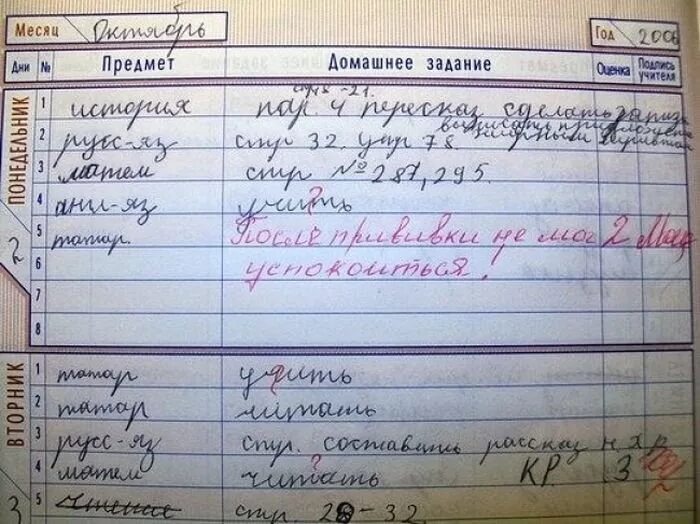 Месяц Октябрь Год 2006
Дни № Предмет Домашнее задание Оценка Подпись учителя
ПОНЕДЕЛЬНИК 2
стр 18-21.
1 история пар. 4 пересказ сделать
2 русс-яз стр 32. упр 78.
3 матем стр №287, 295.
4 анг-яз учить
?
5 татар. После прививки не мог 2
6 успокоиться!
7
8
ВТОРНИК 3
1 татар учить
2 татар читать
3 русс-яз стр. составить рассказ
?
4 матем читать КР 3
5 чтение стр. 28-32